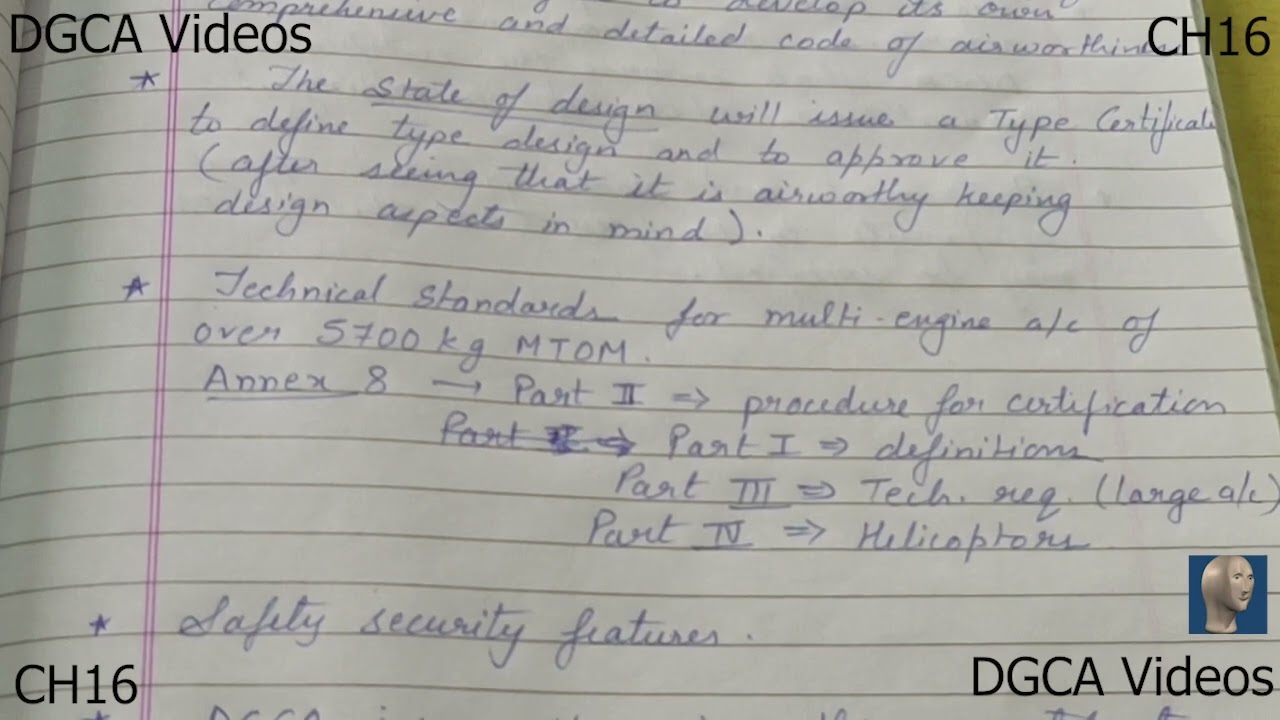 develop its own
DGCA Videos
CH16
comprehensive and detailed code of
* The State of design will issue a Type
to define type design and to approve it.
(after seeing that it is airworthy keeping
design aspects in mind).
* Technical standards for multi-engine a/c of
over 5700 kg MTOM.
Annex 8 → Part II ⇒ procedure for certification
Part I ⇒ definitions
Part III ⇒ Tech. req. (large a/c)
Part IV ⇒ Helicoptors
* Safety security features.
CH16
DGCA Videos
DGCA